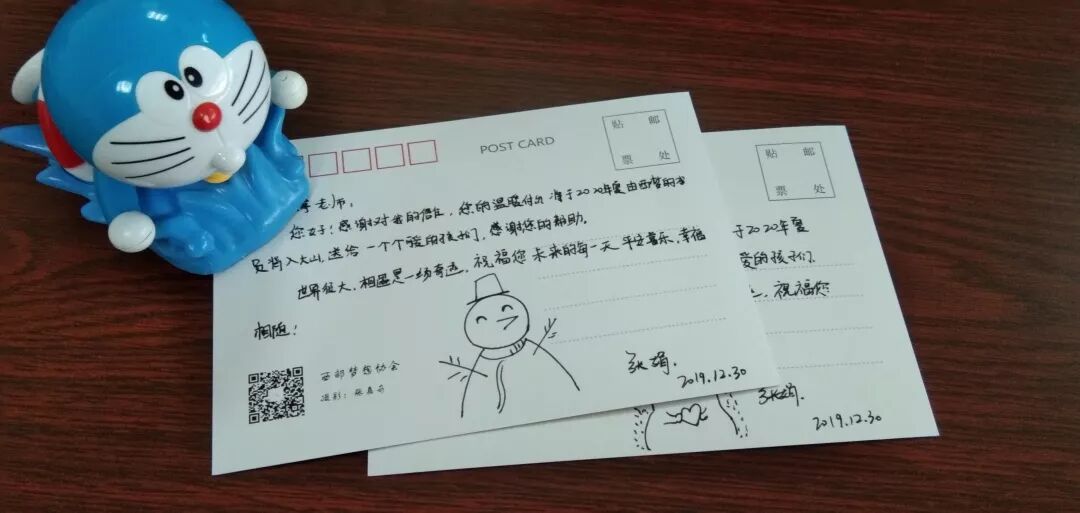 POST CARD
贴 邮
票 处
老师:
您好!感谢对我的信任,您的温暖付出将于2020年夏由西梦的成
员背入大山,送给一个个可爱的孩子们,感谢您的帮助。
世界很大,相遇是一场奇迹,祝福您未来的每一天平安喜乐、幸福
相随!
西部梦想协会
摄影:
张娟.
2019.12.30
贴 邮
票 处
于2020年夏
爱的孩子们.
祝福您
张娟.
2019.12.30